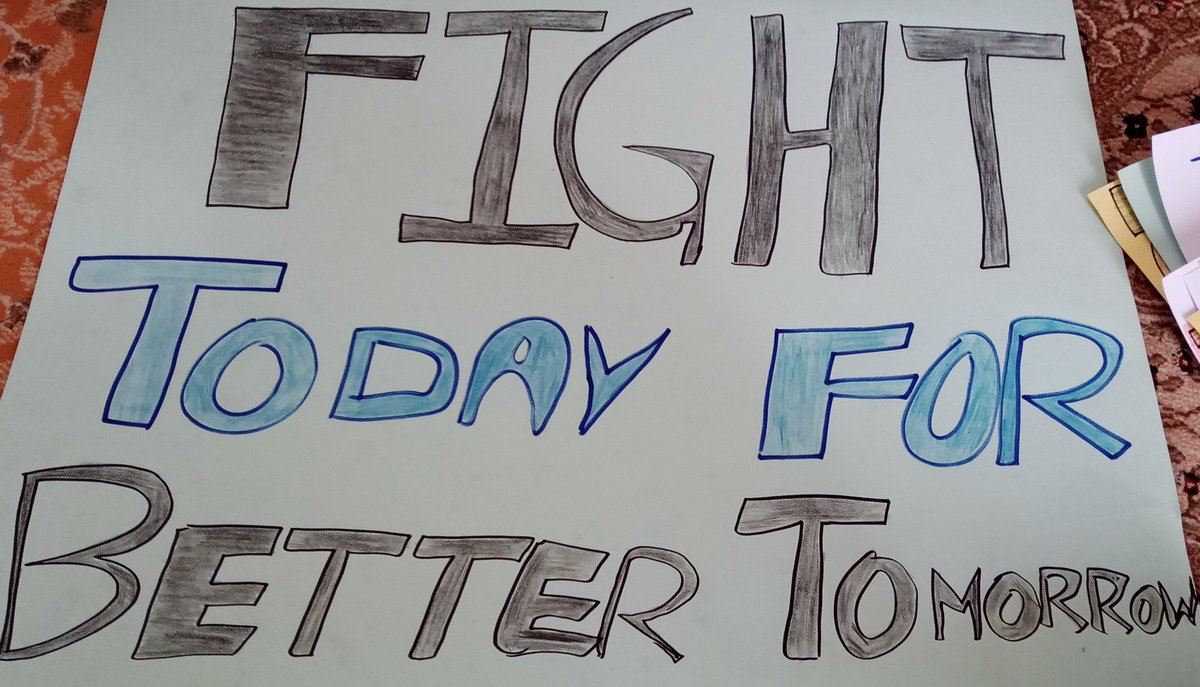 FIGHT
TODAY FOR
BETTER TOMORROW